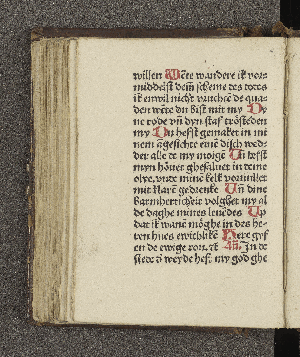 willen Wēte wandere ik vor
middelst dem̄ scheme des dodes
ik en wil nicht vruchtē de qua
den wēte du bist mit my Dy
ne rode vn̄ dyn staf trösteden
my Du hefst gemaket in mi
nem āgesichte enē disch wed
der alle de my moiē Du hefst
myn hōuet ghesaluet in deme
olye vnde minē kelk vormiddelst
mit klarē gedrenke Vn̄ dine
Barmherticheit volghet my al
de daghe mines leuēdes Vp
dat ik wanē möghe in des he
ren hues ewichlike Here gyf
en de ewige row. ꝛc An̄. In de
stede d' weyde heft my god ghe